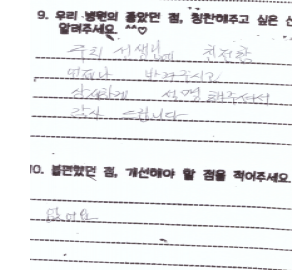 9. 우리 병원의 좋았던 점, 칭찬해주고 싶은 선
알려주세요 ^^♡
우리 선생님께 친절한
받아주시고
상세하게 설명해주셔서
감사 드립니다
10. 불편했던 점, 개선해야 할 점을 적어주세요.
없어요